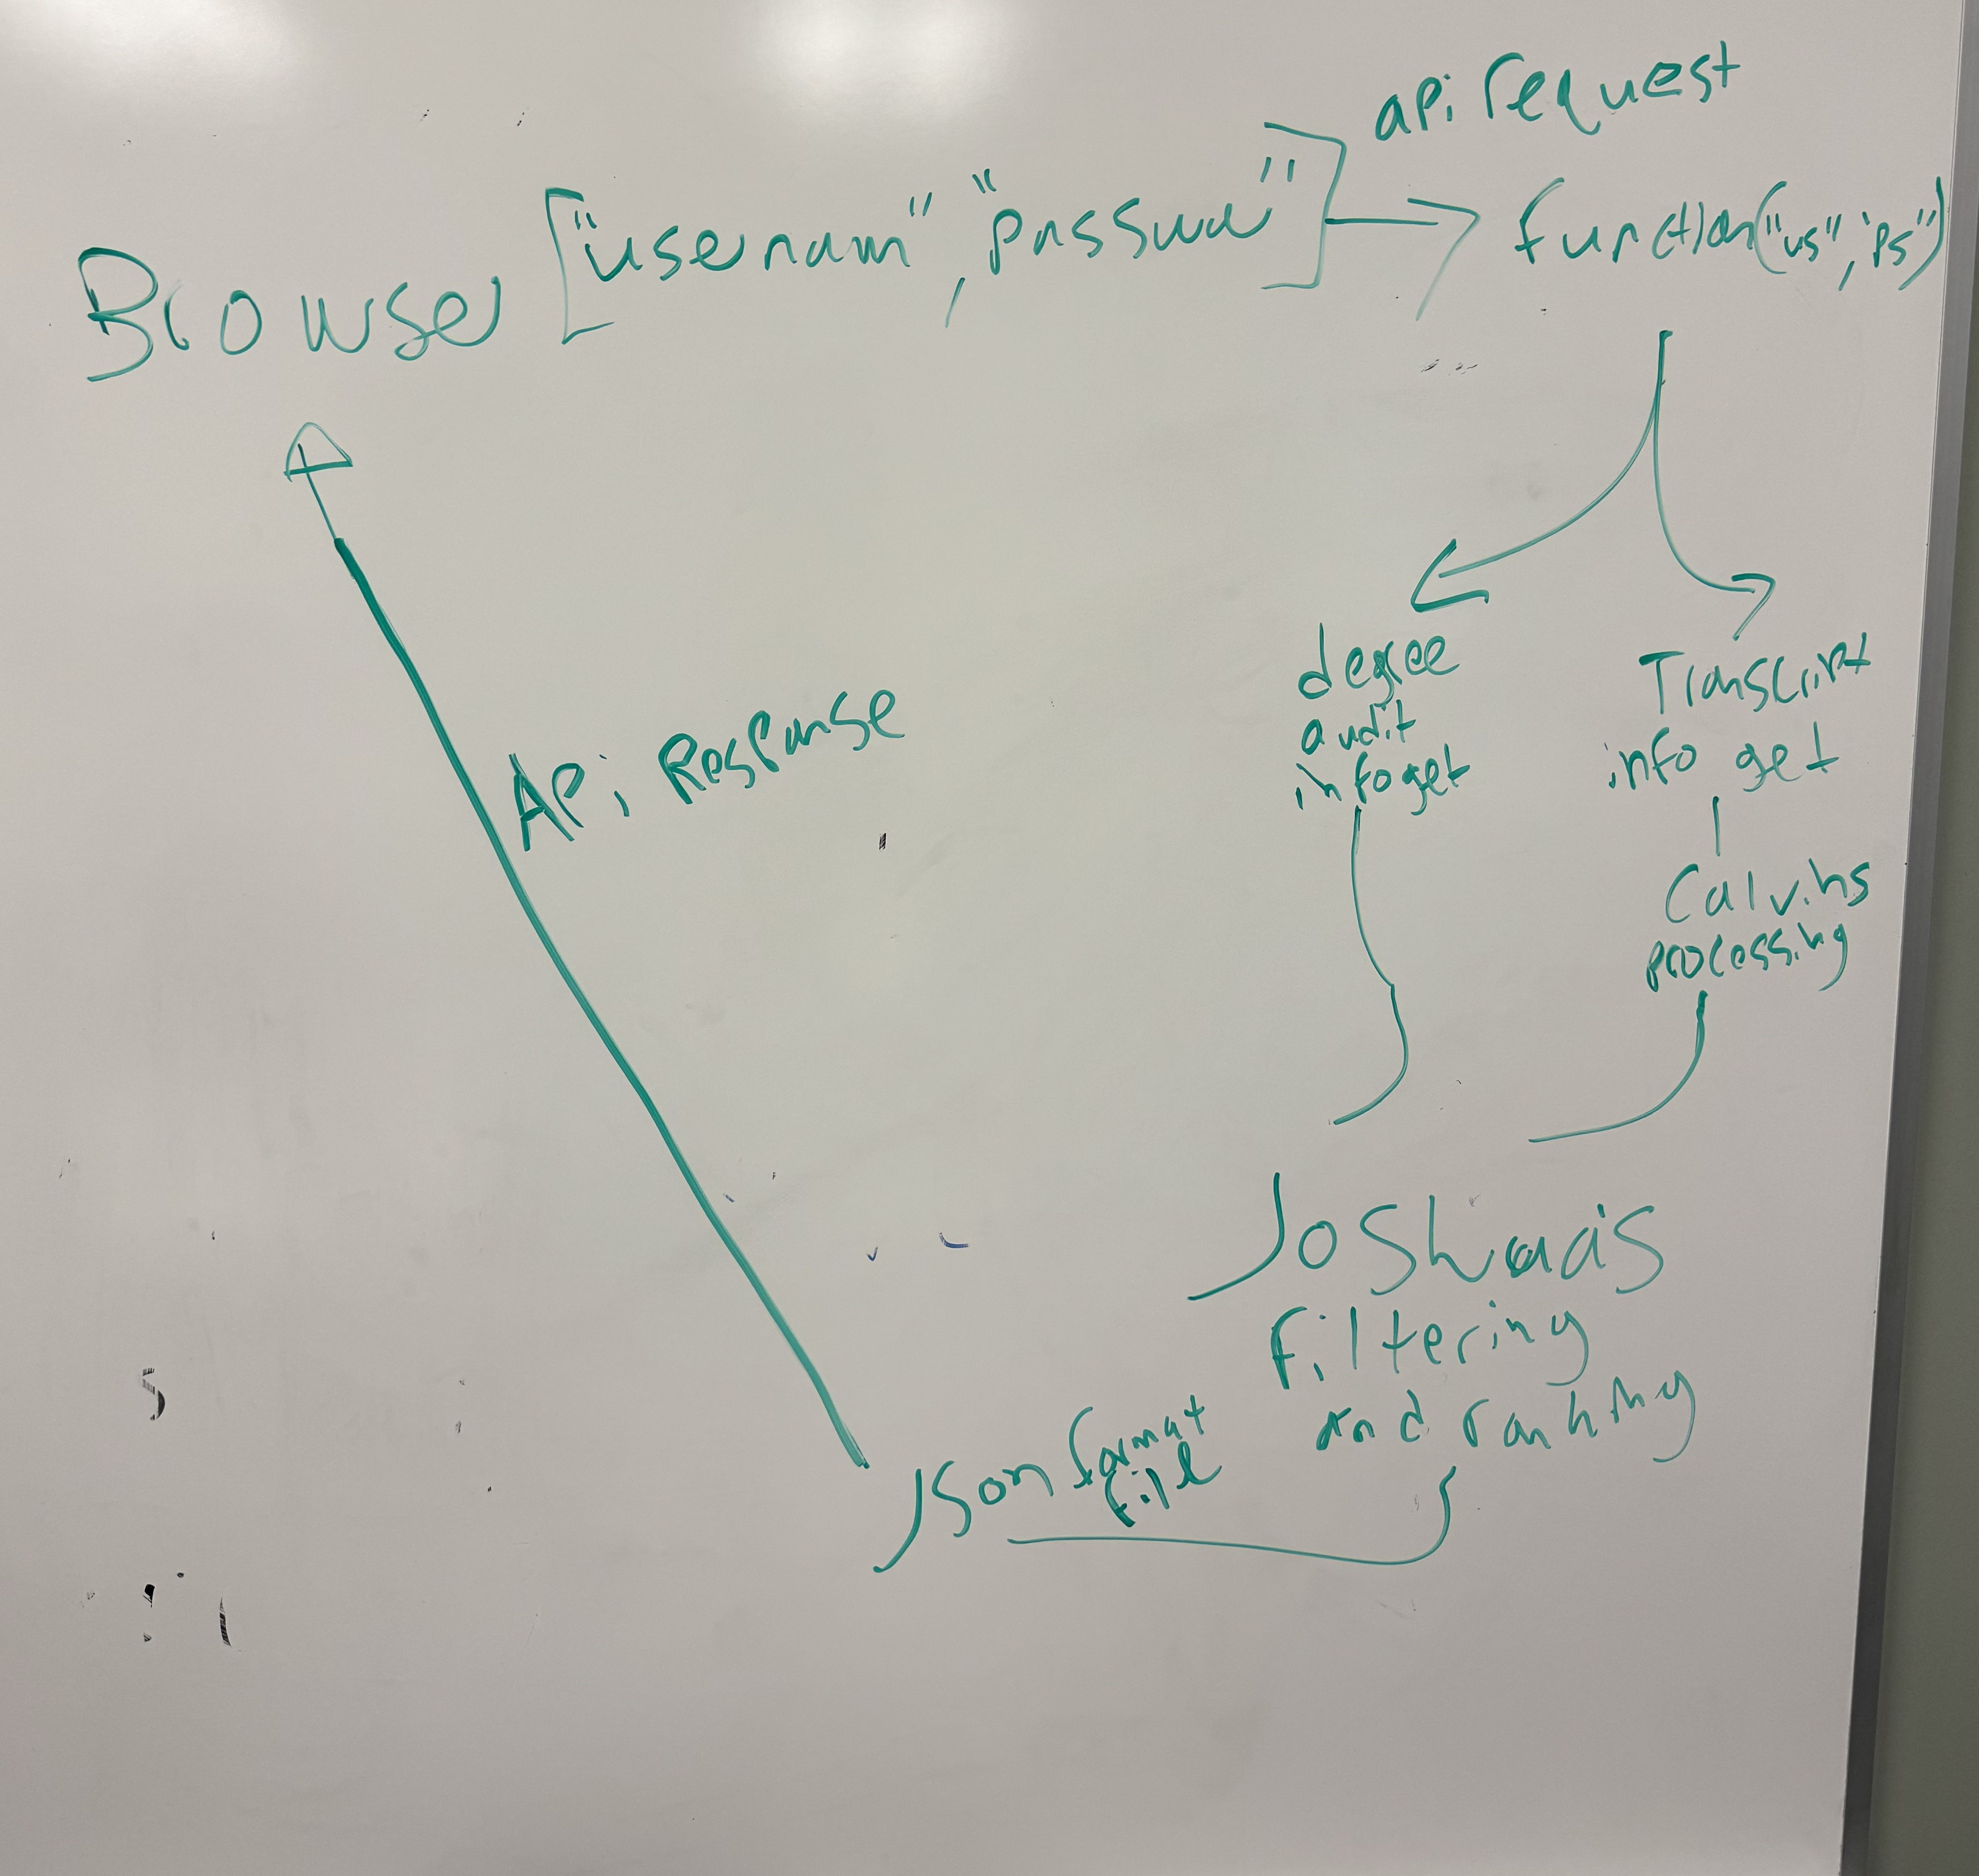 api request
Browser ["usernam", "passwd"] → function("us", "Ps")
degree
audit
info get
Transcript
info get
Calvins
processing
API Response
Joshua's
filtering
and ranking
Json format
file